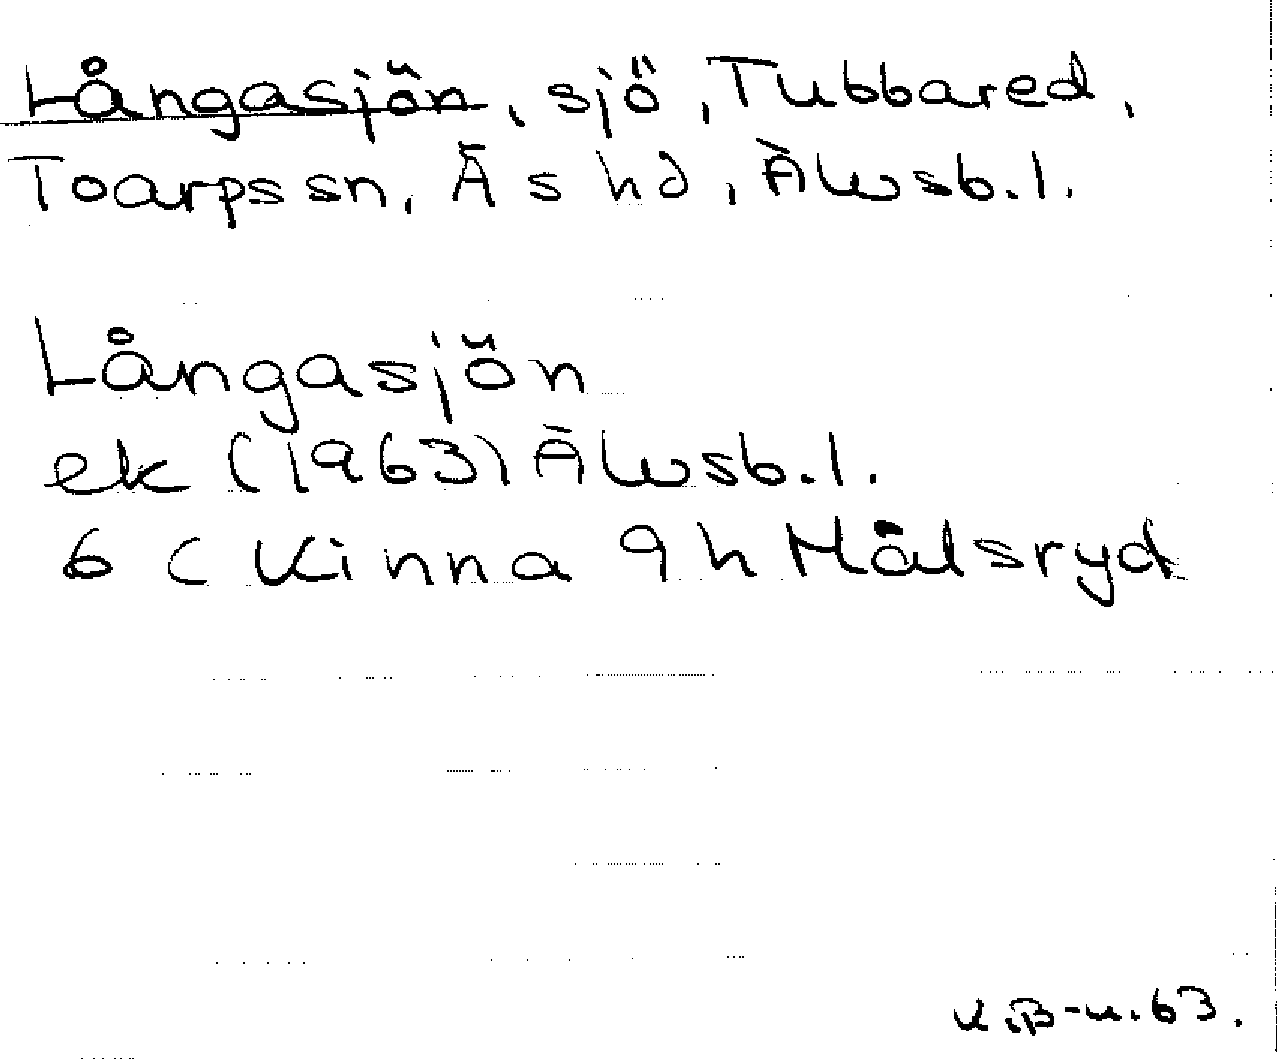 Långasjön, sjö, Tubbared,
Toarps sn, Ås hd, Älvsb. l.
Långasjön
ek (1963) Älvsb. l.
6 C Kinna 9 h Målsryd
K.B-n. 63.